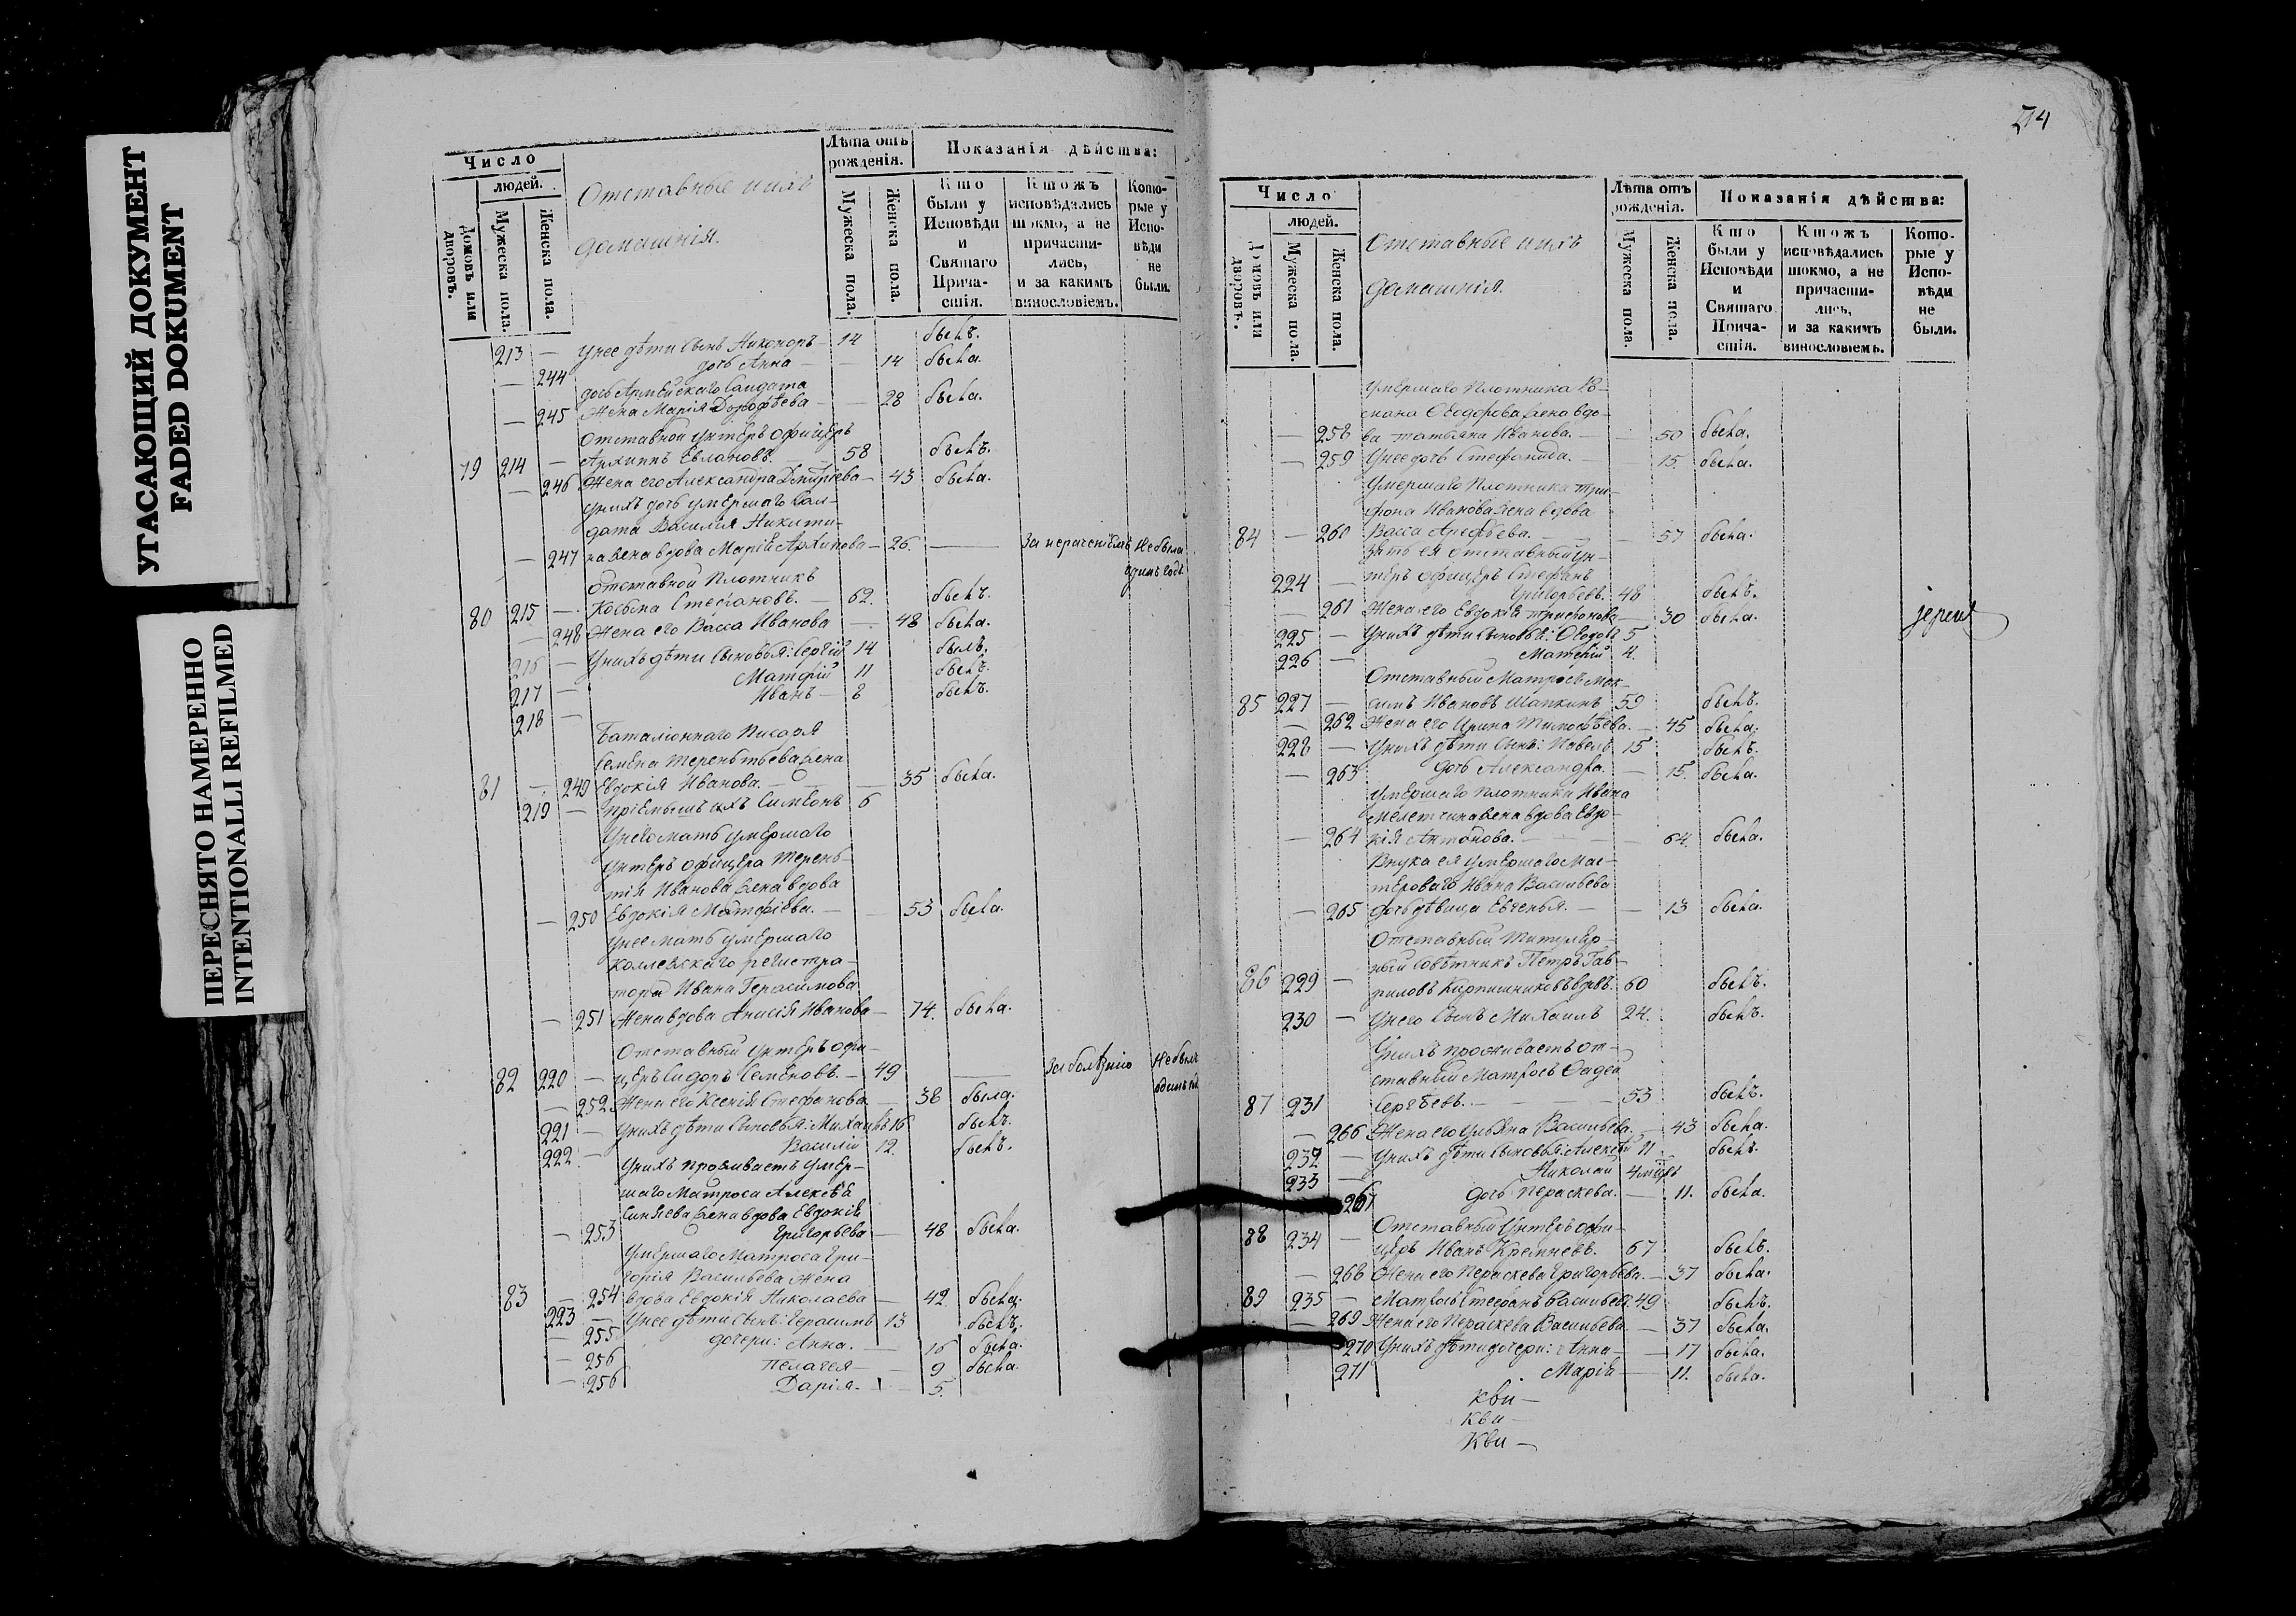 УГАСАЮЩИЙ ДОКУМЕНТ
FADED DOKUMENT
ПЕРЕСНЯТО НАМЕРЕННО
INTENTIONALLI REFILMED
Число
людей.
Домовъ или дворовъ.
Мужеска пола.
Женска пола.
Отставные и ихъ
домашнія.
Лѣта отъ рожденія.
Мужеска пола.
Женска пола.
Показанія дѣйства:
Кто были у Исповѣди и Святаго Прича-стія.
Ктожъ исповѣдались токмо, а не причасти-лись, и за какимъ винословіемъ.
Кото-рые у Испо-вѣди не были.
213 — Унее дѣти сынъ Никоноръ — 14 былъ.
— 244 дочь Анна — — 14 была.
дочь Армейскаго Салдата
— 245 Жена Марія Дорофѣева — — 28 была.
Отставной унтеръ офицеръ
79 214 — Архиппъ Евлаповъ. — 58 былъ.
— 246 Жена его Александра Дмитріева — 43 была.
унихъ дочь умершаго Сал-
дата Василія Никити-
— 247 на жена вдова Марія Архипова — 26. — За нераченіемъ Не была
одинъ годъ
Отставной Плотникъ
80 215 — Косьма Стефановъ. — 62. былъ.
— 248 Жена его Васса Иванова — 48 была.
216 — Унихъ дѣти сыновья: Сергій 14 былъ.
217 — Матфій 11 былъ.
218 — Иванъ — 8 былъ.
Баталіоннаго Писаря
Семена Терентьева жена
81 — 249 Евдокія Иванова. — — 35 была.
219 — пріемышъ ихъ Симеонъ 6
Унего мать умершаго
унтеръ офицера Терен-
тія Иванова жена вдова
— 250 Евдокія Матфіева. — — 53 была.
унее мать умершаго
коллежскаго регистра-
тора Ивана Герасимова
— 251 Жена вдова Анисія Иванова — 74. была.
Отставный унтеръ офи-
82 220 — церъ Сидоръ Семеновъ. — 49 — За болѣзнію Не былъ
одинъ годъ
— 252 Жена его Ксенія Стефанова — 38 была.
221 — Унихъ дѣти сыновья: Михаилъ 16 былъ.
222 — Василій 12. былъ.
Унихъ проживаетъ умер-
шаго Матроса Алексѣя
Синяева жена вдова Евдокія
— 253 Григорьева — 48 была.
Умершаго Матроса Гри-
горія Васильева жена
83 — 254 вдова Евдокія Николаева — 42 была.
223 — Унее дѣти сынъ: Герасимъ 13 былъ.
— 255 дочери: Анна. — 16 была.
— 256 Пелагея — 9 была.
— 256 Дарія. — 5.
514
Число
людей.
Домовъ или дворовъ.
Мужеска пола.
Женска пола.
Отставные и ихъ
домашнія.
Лѣта отъ рожденія.
Мужеска пола.
Женска пола.
Показанія дѣйства:
Кто были у Исповѣди и Святаго Прича-стія.
Ктожъ исповѣдались токмо, а не причасти-лись, и за какимъ винословіемъ.
Кото-рые у Испо-вѣди не были.
Умершаго Плотника Ро-
мана Ѳеодорова жена вдо-
— 258 ва Татьяна Иванова. — — 50 была.
— 259 Унее дочь Стефанида. — — 15. была.
Умершаго Плотника Три-
фона Иванова жена вдова
84 — 260 Васса Арефьева. — — 57 была.
Зять ея отставный ун-
224 — теръ офицеръ Стефанъ
Григорьевъ. 48 былъ.
— 261 Жена его Евдокія Трифонова — 30 была.
іерей
225 — Унихъ дѣти сыновья: Ѳеодоръ 5
226 — Матѳій 4.
Отставный Матросъ Мак-
85 227 — симъ Ивановъ Шапкинъ 59 былъ.
— 262 Жена его Ирина Тимофѣева. — 45 была.
228 — Унихъ дѣти сынъ: Павелъ 15 былъ.
— 263 дочь Александра. — 15. была.
Умершаго плотника Ивана
жена вдова Евдо-
— 264 кія Антонова. — — 64. была.
Внука ея умершаго Мас-
тероваго Ивана Васильева
— 265 дочь дѣвица Евгенья. — — 13 была.
Отставный Титуляр-
ный Совѣтникъ Петръ Гав-
86 229 — риловъ Кирпишниковъ вдовъ. 60 былъ.
230 — Унего сынъ Михаилъ 24. былъ.
Унихъ проживаетъ от-
ставный Матросъ Ѳадей
87 231 Сергѣевъ. — 53 былъ.
— 266 Жена его Ульяна Васильева. — 43 была.
232 — Унихъ дѣти сыновья: Алексѣй 11 былъ.
233 — Николай 4 мцѣ
267 дочь Параскева. — 11. была.
Отставный Унтеръ офи-
88 234 — церъ Иванъ Кремневъ. 67 былъ.
— 268 Жена его Параскева Григорьева. — 37 была.
89 235 — Матросъ Стефанъ Васильевъ. 49 былъ.
— 269 Жена его Параскева Васильева — 37 была.
270 Унихъ дѣти дочери: Анна — — 17 была.
271 Марія — 11. была.